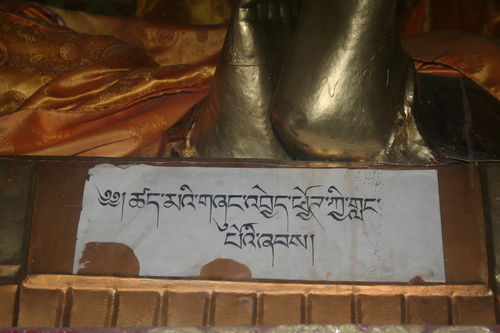 ༄༅། ཚད་མའི་གཞུང་འབྱེད་ཕྱོཊ་ཀྱི་གླང་
པོའི་ཞབས།